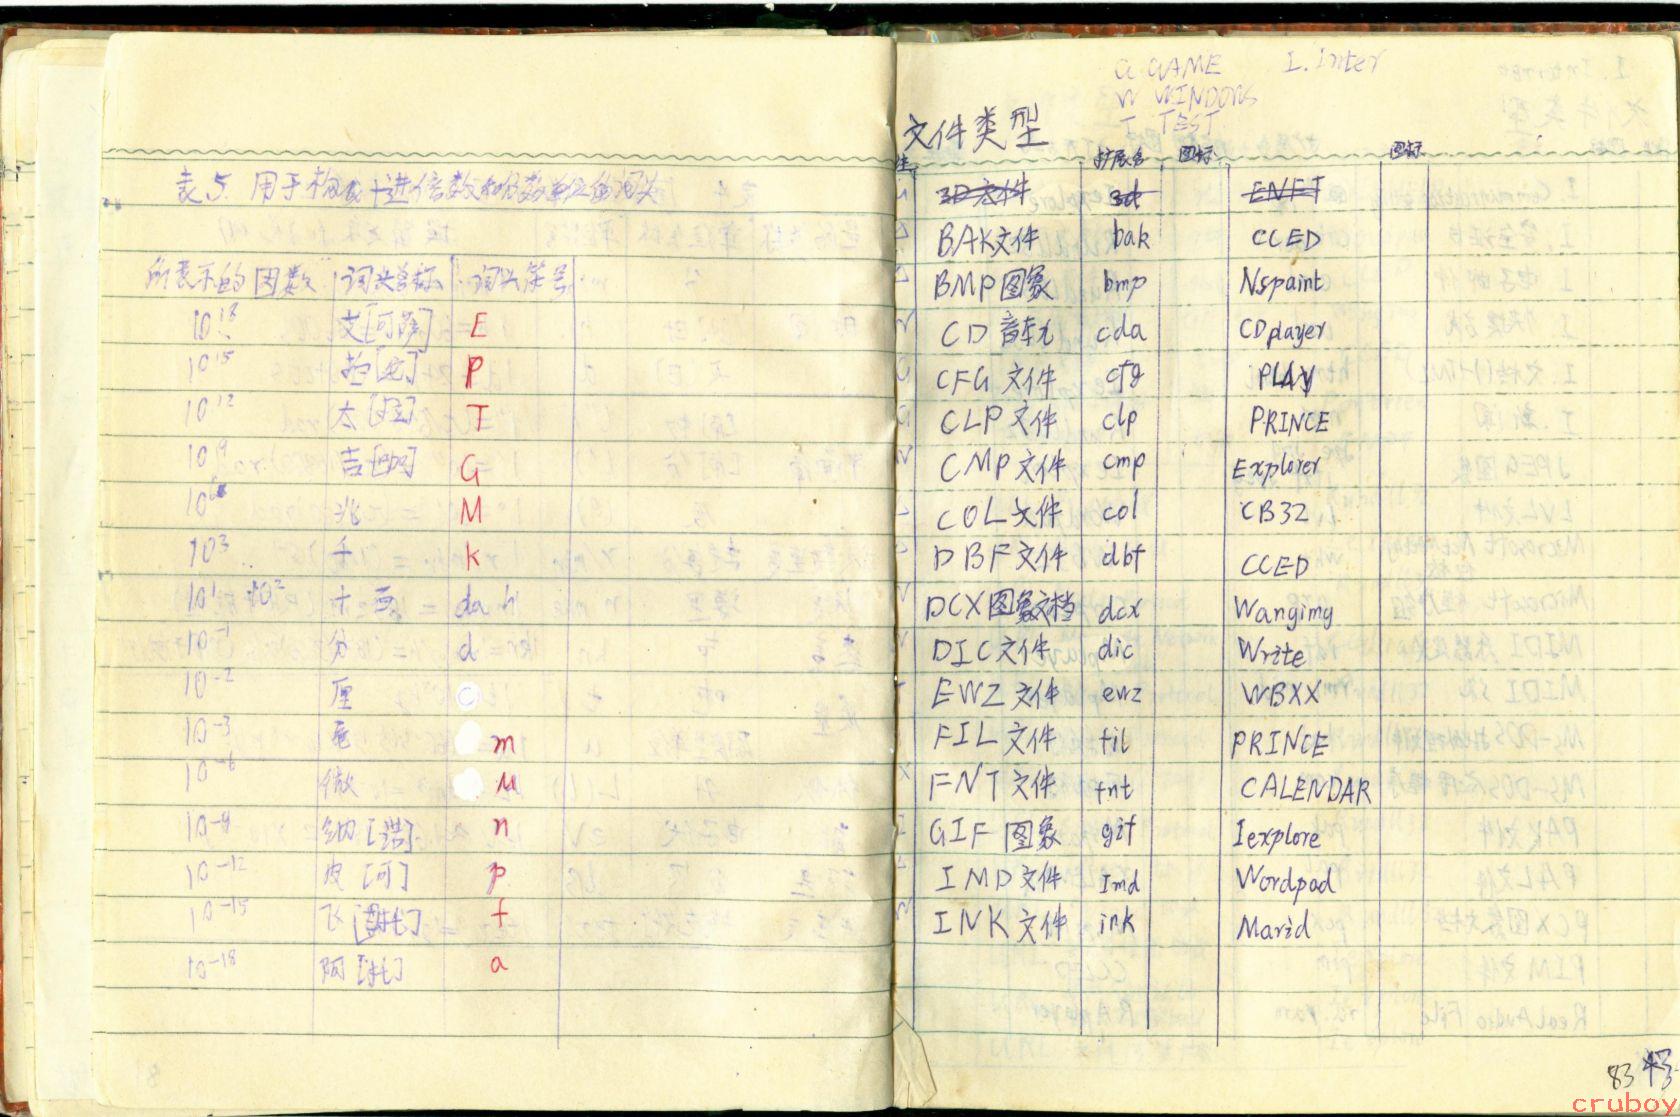 表5. 用于构成十进倍数和分数单位的词头
所表示的因数 词头名称 词头符号
10¹⁸ 艾[可萨] E
10¹⁵ 拍[它] P
10¹² 太[拉] T
10⁹ 吉[咖] G
10⁶ 兆 M
10³ 千 k
10¹ 10² 十 百 da h
10⁻¹ 分 d
10⁻² 厘 c
10⁻³ 毫 m
10⁻⁶ 微 μ
10⁻⁹ 纳[诺] n
10⁻¹² 皮[可] p
10⁻¹⁵ 飞[母托] f
10⁻¹⁸ 阿[托] a
G GAME I. Inter
W WINDOWS
T TEST
文件类型
扩展名 图标 图标
3D文件 3d ENET
BAK文件 bak CCED
BMP图象 bmp Nspaint
CD音轨 cda CDplayer
CFG文件 cfg PLAY
CLP文件 clp PRINCE
CMP文件 cmp Explorer
COL文件 col CB32
DBF文件 dbf CCED
DCX图象文档 dcx Wangimg
DIC文件 dic Write
EWZ文件 ewz WBXX
FIL文件 fil PRINCE
FNT文件 fnt CALENDAR
GIF图象 gif Iexplore
IMD文件 Imd Wordpad
INK文件 ink Marid
83
cruboy